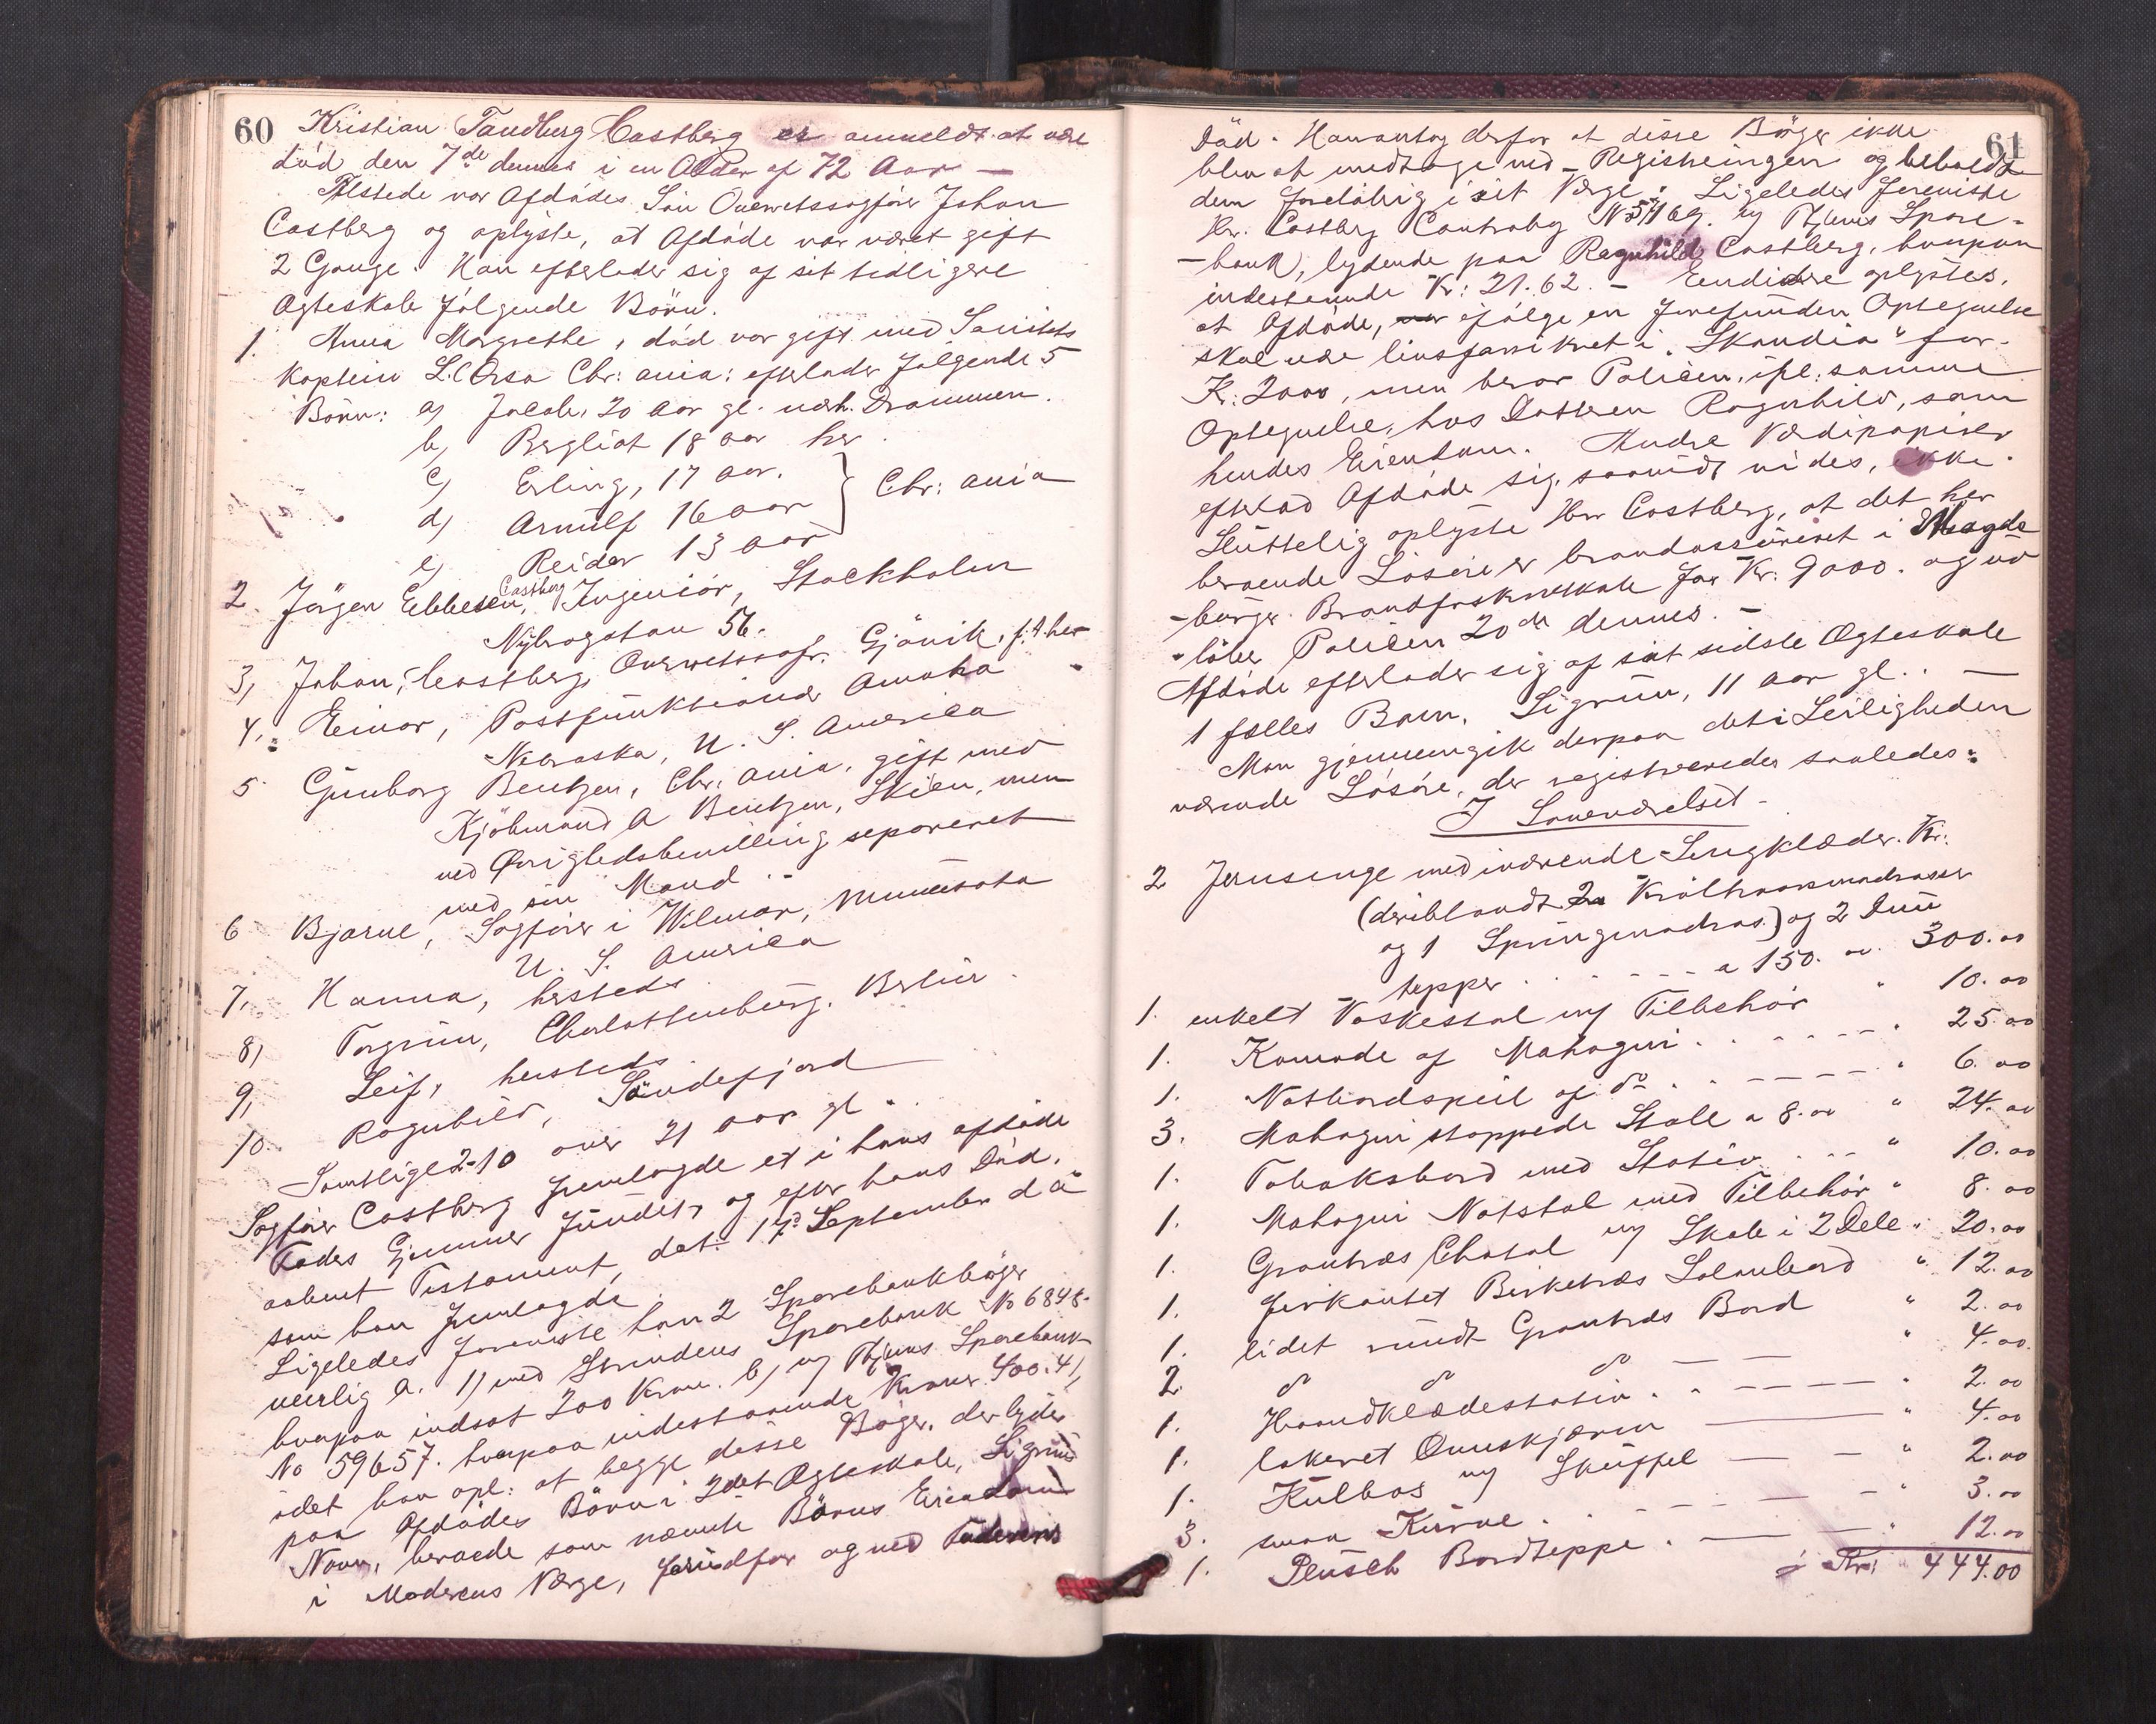 60
Kristian Tandberg Castberg er anmeldt at være
död den 7de dennes i en Alder af 72 Aar —
Tilstede var Afdödes Sön Overretssagförer Johan
Castberg og oplyste, at Afdöde var været gift
2 Gange. Han efterlader sig af sit tidligere
Ægteskab følgende Börn.
1. Anna Margrethe, död var gift med Sanitets
Kaptein L. Orsa Chr: ania: efterlader følgende 5
Börn: a) Jacob, 20 Aar gl. Drammen.
b) Bergliot 18 aar her.
c) Erling, 17 aar.
d) Arnulf 16 aar } Chr: ania
e) Reidar 13 aar
2. Jörgen Ebbesen Castberg, Ingeniör, Stockholm
Nybrogatan 56.
3, Johan Castberg, Overretssagf. Gjövik, f: t. her
4. Einar, Postfunktionær Omaha
Nebraska, U. S. America
5 Gunborg Bentzen, Chr: ania, gift med
Kjöbmand A Bentzen, Skien, men
ved Övrighedsbevilling separeret
med sin Mand.
6 Bjarne, Sagförer i Wilmar, Minnesota
U. S. America
7, Hanna, hersteds
8, Torgrim, Charlottenburg. Berlin.
9, Leif, hersteds
10. Ragnhild, Sandefjord
Samtlige 2-10 over 21 aar gl.
Sagförer Castberg fremlagde et i hans afdöde
Faders Gjemmer fundet, og efter hans Död,
aabnet Testament, dat. 17 September d a
som han fremlagde.
Ligeledes foreviste han 2 Sparebankböger
nemlig a. 1) med Strindens Sparebank No 6848
hvorpaa indsat 200 Kron. b) ny Thjems Sparebank
No 59657. hvorpaa indestaaende Kroner 400.41,
idet han opl: at begge disse Böger, der lyder
paa Afdödes Börn i 2det Ægteskab, Sigruns
Navn, beroede som nævnte Börns Eiendom
i Moderens Værge, forud for og ved Faderens
61
Död. Han antog derfor at disse Böger ikke
blev at medtage ved Registreringen og beholdt
dem foreløbig i sit Værge. Ligeledes foreviste
Hr. Castberg Contrabog No 57169. ny Thjems Spare-
-bank, lydende paa Ragnhild Castberg, hvorpaa
indestaaende Kr: 21.62. — Endvidere oplystes,
at Afdöde, ifølge en forefunden Optegnelse
skal være livsforsikret i „Skandia" for
Kr: 2000, men beror Policen, ifl: samme
Optegnelse, hos Datteren Ragnhild, som
hendes Eiendom. Andre Værdipapirer
efterlod Afdöde sig, saavidt vides, ikke.
Sluttelig oplyste Herr Castberg, at det her
beroende Lösöre er brandassureret i Magde
-burger Brandforsikrselskab for Kr: 9000. og ud
-löber Policen 20de dennes. —
Afdöde efterlader sig af sit sidste Ægteskab
1 fælles Barn, Sigrun, 11 aar gl. —
Man gjennemgik derpaa det i Leiligheden
værende Lösöre, der registreredes saaledes:
I Soveværelset.
2 Jernsenge med iværende Sengklæder. Kr:
(deriblandt 2 Krölhaarsmadrasser
og 1 Springmadras.) og 2 Dun
tepper . . . . a 150. 00. 300.00
1. enkelt Vaskestol m/ Tilbehör " 10.00
1. Komode af Mahogni . . . . " 25.00
1. Natbordspeil af do . . . " 6.00
3. Mahogni stoppede Stole a 8.00 " 24.00
1. Tobaksbord med Stativ . . . " 10.00
1. Mahogni Natstol med Tilbehör " 8.00
1. Grantræs Chatol m/ Skab i 2 Dele " 20.00
1. firkantet Birketræs Salonbord " 12.00
1. lidet rundt Grantræs Bord " 2.00
2. do do do — — " 4.00
1. Haandklædestativ . . — — " 2.00
1. lakeret Ovnsskjærm — " 4.00
1. Kulbox m/ Skuffel — — " 2.00
3. smaa Kurve . — — " 3.00
1. Pleusch Bordteppe . — — " 12.00
Kr: 444.00